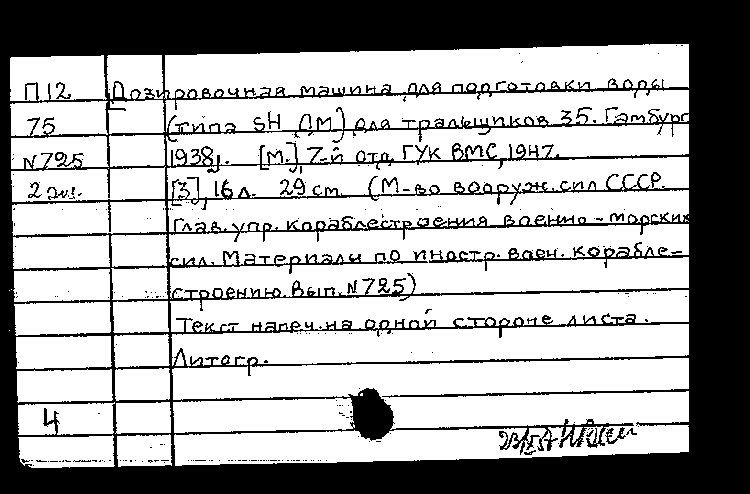 П12 Дозировочная машина для подготовки воды
75 (типа SH ДМ) для тральщиков 35. Гамбург
N725 1938г. [М.], 7-й отд. ГУК ВМС, 1947.
2 экз. [3], 16 л. 29 см (М-во вооруж. сил СССР.
Глав. упр. кораблестроения военно-морских
сил. Материалы по иностр. воен. корабле-
строению. Вып. N725)
Текст напеч. на одной стороне листа.
Литогр.
4